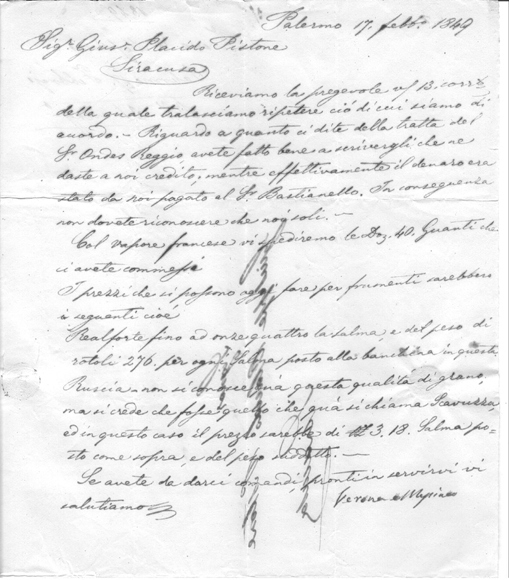 Palermo 17. febb.º 1849
Sig.r Gius.e Placido Pistone
Siracusa
Riceviamo la pregevole v/ 13. corr.e
della quale tralasciamo ripetere ciò di cui siamo di
accordo. – Riguardo a quanto ci dite della tratta del
Sr. Ondes Reggio avete fatto bene a scrivergli che ne
daste a noi credito, mentre effettivamente il denaro era
stato da noi pagato al Sr. Bastianello. In conseguenza
non dovete riconoscere che noi soli. –
Col vapore francese vi spediremo le Doz. 40. Guanti che
ci avete commessi
I prezzi che si possono oggi fare per frumenti sarebbero
i seguenti cioè
Realforte fino ad onze quattro la salma, e del peso di
rotoli 276. per ogni Salma posto alla banchina in questa
Ruscia – non si conosce quà questa qualità di grano,
ma si crede che fosse quello che quà si chiama
ed in questo caso il prezzo sarebbe di 3. 18. Salma po-
sto come sopra, e del peso suddetto. –
Se avete da darci comandi, pronti in servirvi vi
salutiamo
Verona e